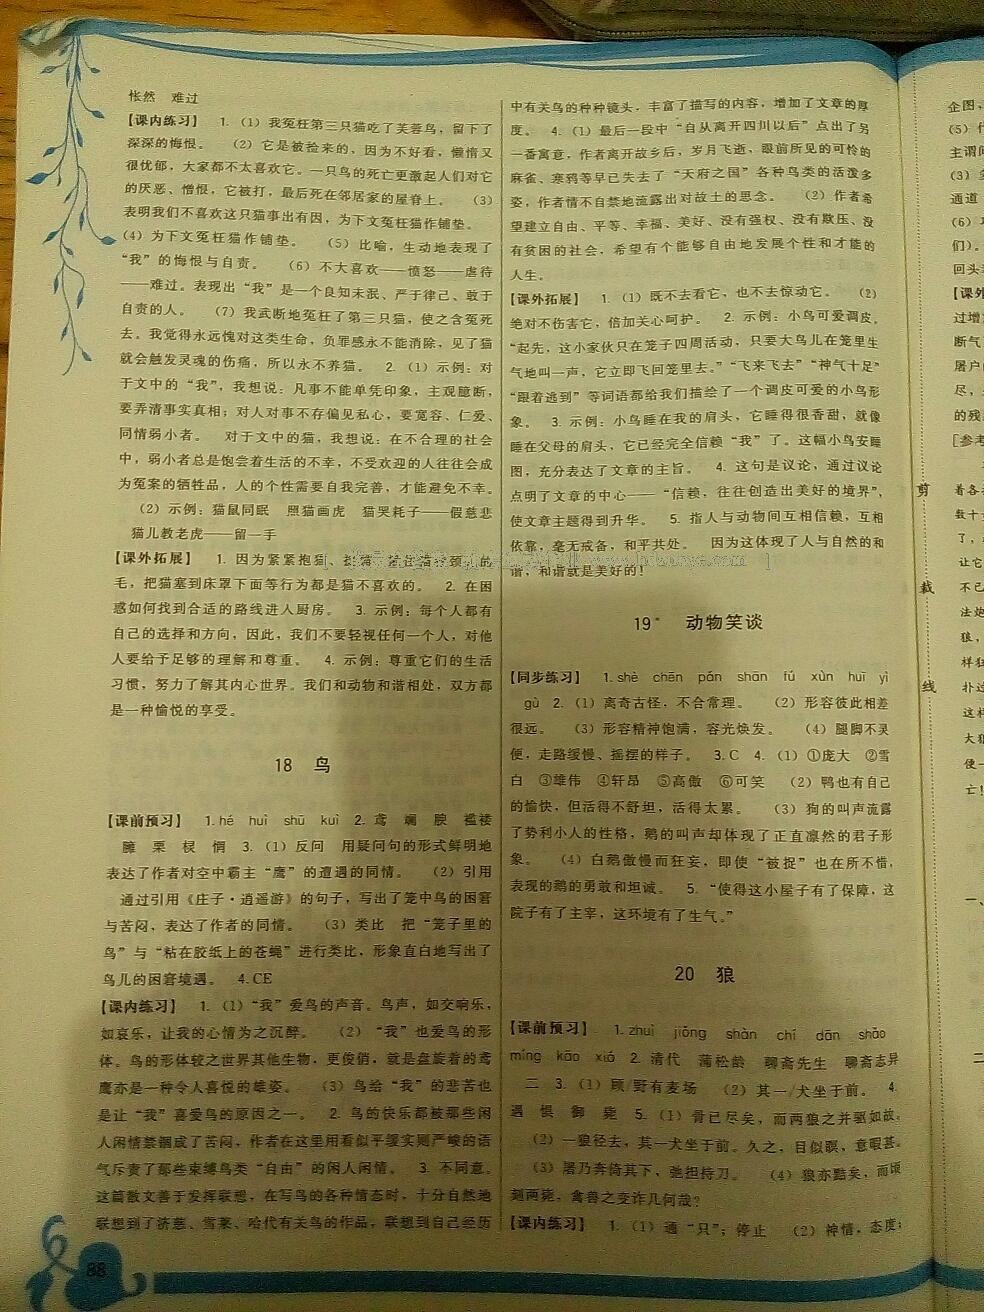 怅然 难过
【课内练习】 1.（1）我冤枉第三只猫吃了芙蓉鸟，留下了
深深的悔恨。 （2）它是被捡来的，因为不好看，懒惰又
很忧郁，大家都不太喜欢它。一只鸟的死亡更激起人们对它
的厌恶、憎恨，它被打，最后死在邻居家的屋脊上。 （3）
表明我们不喜欢这只猫事出有因，为下文冤枉猫作铺垫。
（4）为下文冤枉猫作铺垫。 （5）比喻，生动地表现了
“我”的悔恨与自责。 （6）不大喜欢——愤怒——虐待
——难过。表现出“我”是一个良知未泯、严于律己、敢于
自责的人。 （7）我武断地冤枉了第三只猫，使之含冤死
去。我觉得永远愧对这类生命，负罪感永不能消除，见了猫
就会触发灵魂的伤痛，所以永不养猫。 2.（1）示例：对
于文中的“我”，我想说：凡事不能单凭印象，主观臆断，
要弄清事实真相；对人对事不存偏见私心，要宽容、仁爱、
同情弱小者。 对于文中的猫，我想说：在不合理的社会
中，弱小者总是饱尝着生活的不幸，不受欢迎的人往往会成
为冤案的牺牲品，人的个性需要自我完善，才能避免不幸。
（2）示例：猫鼠同眠 照猫画虎 猫哭耗子——假慈悲
猫儿教老虎——留一手
【课外拓展】 1. 因为紧紧抱猫
毛，把猫塞到床罩下面等行为都是猫不喜欢的。 2. 在困
惑如何找到合适的路线进入厨房。 3. 示例：每个人都有
自己的选择和方向，因此，我们不要轻视任何一个人，对他
人要给予足够的理解和尊重。 4. 示例：尊重它们的生活
习惯，努力了解其内心世界。我们和动物和谐相处，双方都
是一种愉悦的享受。
18 鸟
【课前预习】 1.hé huì shū kuì 2. 鸢 斓 腴 褴褛
臃 栗 棂 悄 3.（1）反问 用疑问句的形式鲜明地
表达了作者对空中霸主“鹰”的遭遇的同情。 （2）引用
通过引用《庄子·逍遥游》的句子，写出了笼中鸟的困窘
与苦闷，表达了作者的同情。 （3）类比 把“笼子里的
鸟”与“粘在胶纸上的苍蝇”进行类比，形象直白地写出了
鸟儿的困窘境遇。 4.CE
【课内练习】 1.（1）“我”爱鸟的声音。鸟声，如交响乐，
如哀乐，让我的心情为之沉醉。 （2）“我”也爱鸟的形
体。鸟的形体较之世界其他生物，更俊俏，就是盘旋着的鸢
鹰亦是一种令人喜悦的雄姿。 （3）鸟给“我”的悲苦也
是让“我”喜爱鸟的原因之一。 2. 鸟的快乐都被那些闲
人闲情禁锢成了苦闷，作者在这里用看似平缓实则严峻的语
气斥责了那些束缚鸟类“自由”的闲人闲情。 3. 不同意。
这篇散文善于发挥联想，在写鸟的各种情态时，十分自然地
联想到了济慈、雪莱、哈代有关鸟的作品，联想到自己经历
88
中有关鸟的种种镜头，丰富了描写的内容，增加了文章的厚
度。 4.（1）最后一段中“自从离开四川以后”点出了另
一番寓意，作者离开故乡后，岁月飞逝，眼前所见的可怜的
麻雀、寒鸦等早已失去了“天府之国”各种鸟类的活泼多
姿，作者情不自禁地流露出对故土的思念。 （2）作者希
望建立自由、平等、幸福、美好、没有强权、没有欺压、没
有贫困的社会，希望有个能够自由地发展个性和才能的
人生。
【课外拓展】 1.（1）既不去看它，也不去惊动它。 （2）
绝对不伤害它，倍加关心呵护。 2. 示例：小鸟可爱调皮，
“起先，这小家伙只在笼子四周活动，只要大鸟儿在笼里生
气地叫一声，它立即飞回笼里去。”“飞来飞去”“神气十足”
“跟着逃到”等词语都给我们描绘了一个调皮可爱的小鸟形
象。 3. 示例：小鸟睡在我的肩头，它睡得很香甜，就像
睡在父母的肩头，它已经完全信赖“我”了。这幅小鸟安睡
图，充分表达了文章的主旨。 4. 这句是议论，通过议论
点明了文章的中心——“信赖，往往创造出美好的境界”，
使文章主题得到升华。 5. 指人与动物间互相信赖，互相
依靠，毫无戒备，和平共处。 因为这体现了人与自然的和
谐，和谐就是美好的！
19* 动物笑谈
【同步练习】 1.shè chēn pán shān fú xùn huī yì
gù 2.（1）离奇古怪，不合常理。 （2）形容彼此相差
很远。 （3）形容精神饱满，容光焕发。 （4）腿脚不灵
便，走路缓慢、摇摆的样子。 3.C 4.（1）①庞大 ②雪
白 ③雄伟 ④轩昂 ⑤高傲 ⑥可笑 （2）鸭也有自己
的愉快，但活得不舒坦，活得太累。 （3）狗的叫声流露
了势利小人的性格，鹅的叫声却体现了正直凛然的君子形
象。 （4）白鹅傲慢而狂妄，即使“被捉”也在所不惜，
表现的鹅的勇敢和坦诚。 5.“使得这小屋子有了保障，这
院子有了主宰，这环境有了生气。”
20 狼
【课前预习】 1.zhuì jiǒng shàn chí dān shāo
míng kāo xiá 2. 清代 蒲松龄 聊斋先生 聊斋志异
二 3.（1）顾/野有麦场 （2）其一/犬坐于前。 4.
遇 恨 御 毙 5.（1）骨已尽矣，而两狼之并驱如故。
（2）一狼径去，其一犬坐于前。久之，目似瞑，意暇甚。
（3）屠乃奔倚其下，弛担持刀。 （4）狼亦黠矣，而顷
刻两毙，禽兽之变诈几何哉？
【课内练习】 1.（1）通“只”；停止 （2）神情，态度；
剪
裁
线